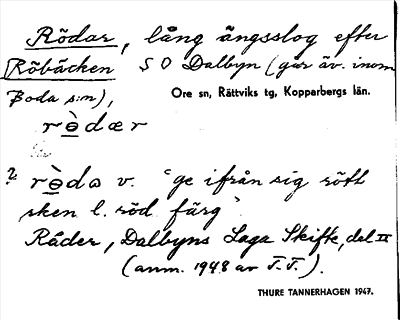 Rödar, lång ängsslog efter
Röbäcken S O Dalbyn (går äv. inom
Boda s:n),
Ore sn, Rättviks tg, Kopparbergs län.
rɵ̀dær
? rɵ̀da v. "ge ifrån sig rött
sken l. röd färg".
Råder, Dalbyns Laga Skifte, del II
(anm. 1948 av T.T.).
THURE TANNERHAGEN 1947.